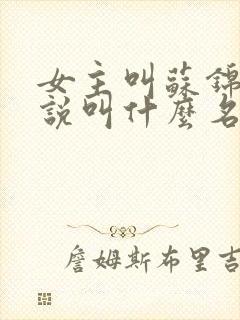 女主叫蘇錦
說叫什麼名
詹姆斯布里吉